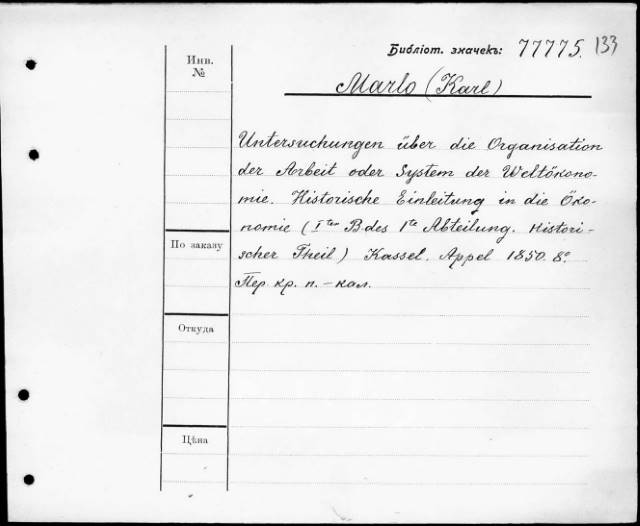 Библіот. значекъ: 77775. 133
Инв. №
Marlo (Karl)
Untersuchungen über die Organisation
der Arbeit oder System der Weltökono-
mie. Historische Einleitung in die Öko-
nomie (Iter B. des 1te Abteilung. Histori-
scher Theil) Kassel. Appel 1850. 8º
Пер. кр. п. – кал.
По заказу
Откуда
Цѣна